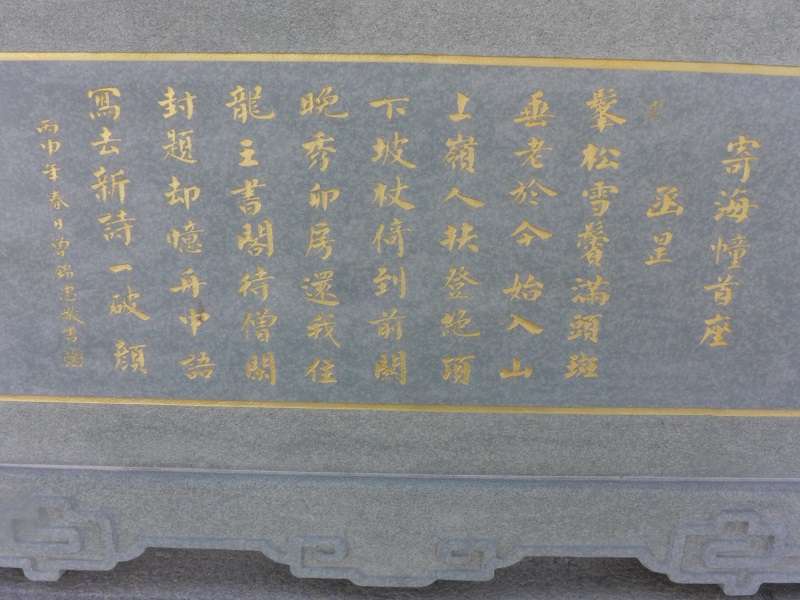 寄海幢首座
函昰
鬖松雪鬢滿頭斑
垂老於今始入山
上嶺人扶登絶頂
下坡杖倚到前關
晚參卯房還我住
龍王書閣待僧閑
封題却憶舟中語
寫去新詩一破顏
丙申年春日曾